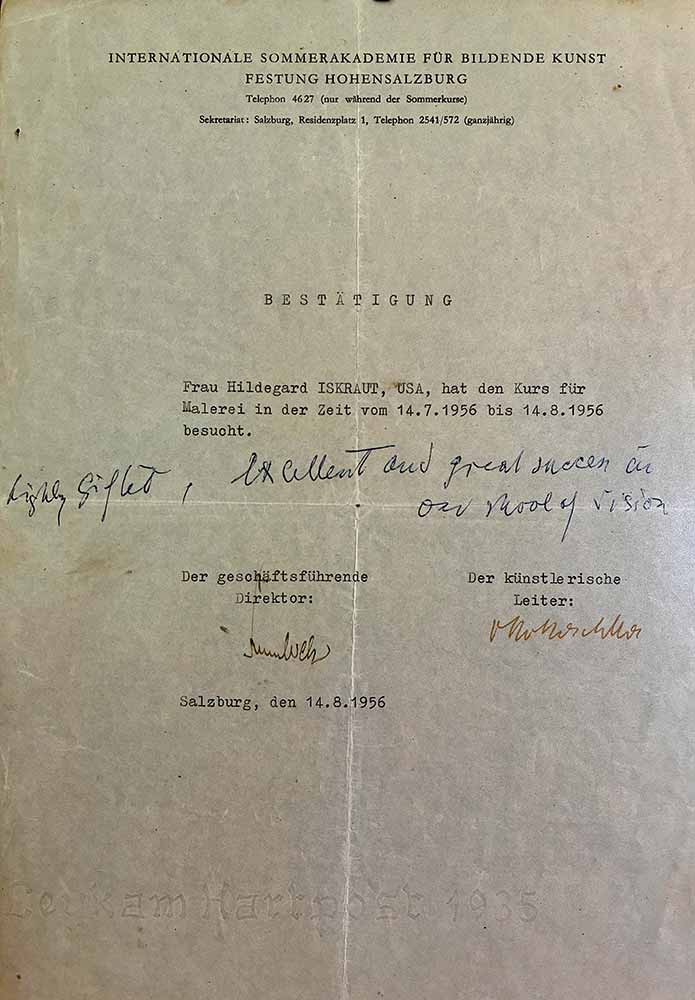 INTERNATIONALE SOMMERAKADEMIE FÜR BILDENDE KUNST
FESTUNG HOHENSALZBURG
Telephon 4627 (nur während der Sommerkurse)
Sekretariat: Salzburg, Residenzplatz 1, Telephon 2541/572 (ganzjährig)
BESTÄTIGUNG
Frau Hildegard ISKRAUT, USA, hat den Kurs für
Malerei in der Zeit vom 14.7.1956 bis 14.8.1956
besucht.
highly gifted, excellent and great success in
our school of vision
Der geschäftsführende
Direktor:
Der künstlerische
Leiter:
OKokoschka
Salzburg, den 14.8.1956
Leykam Hartpost 1935